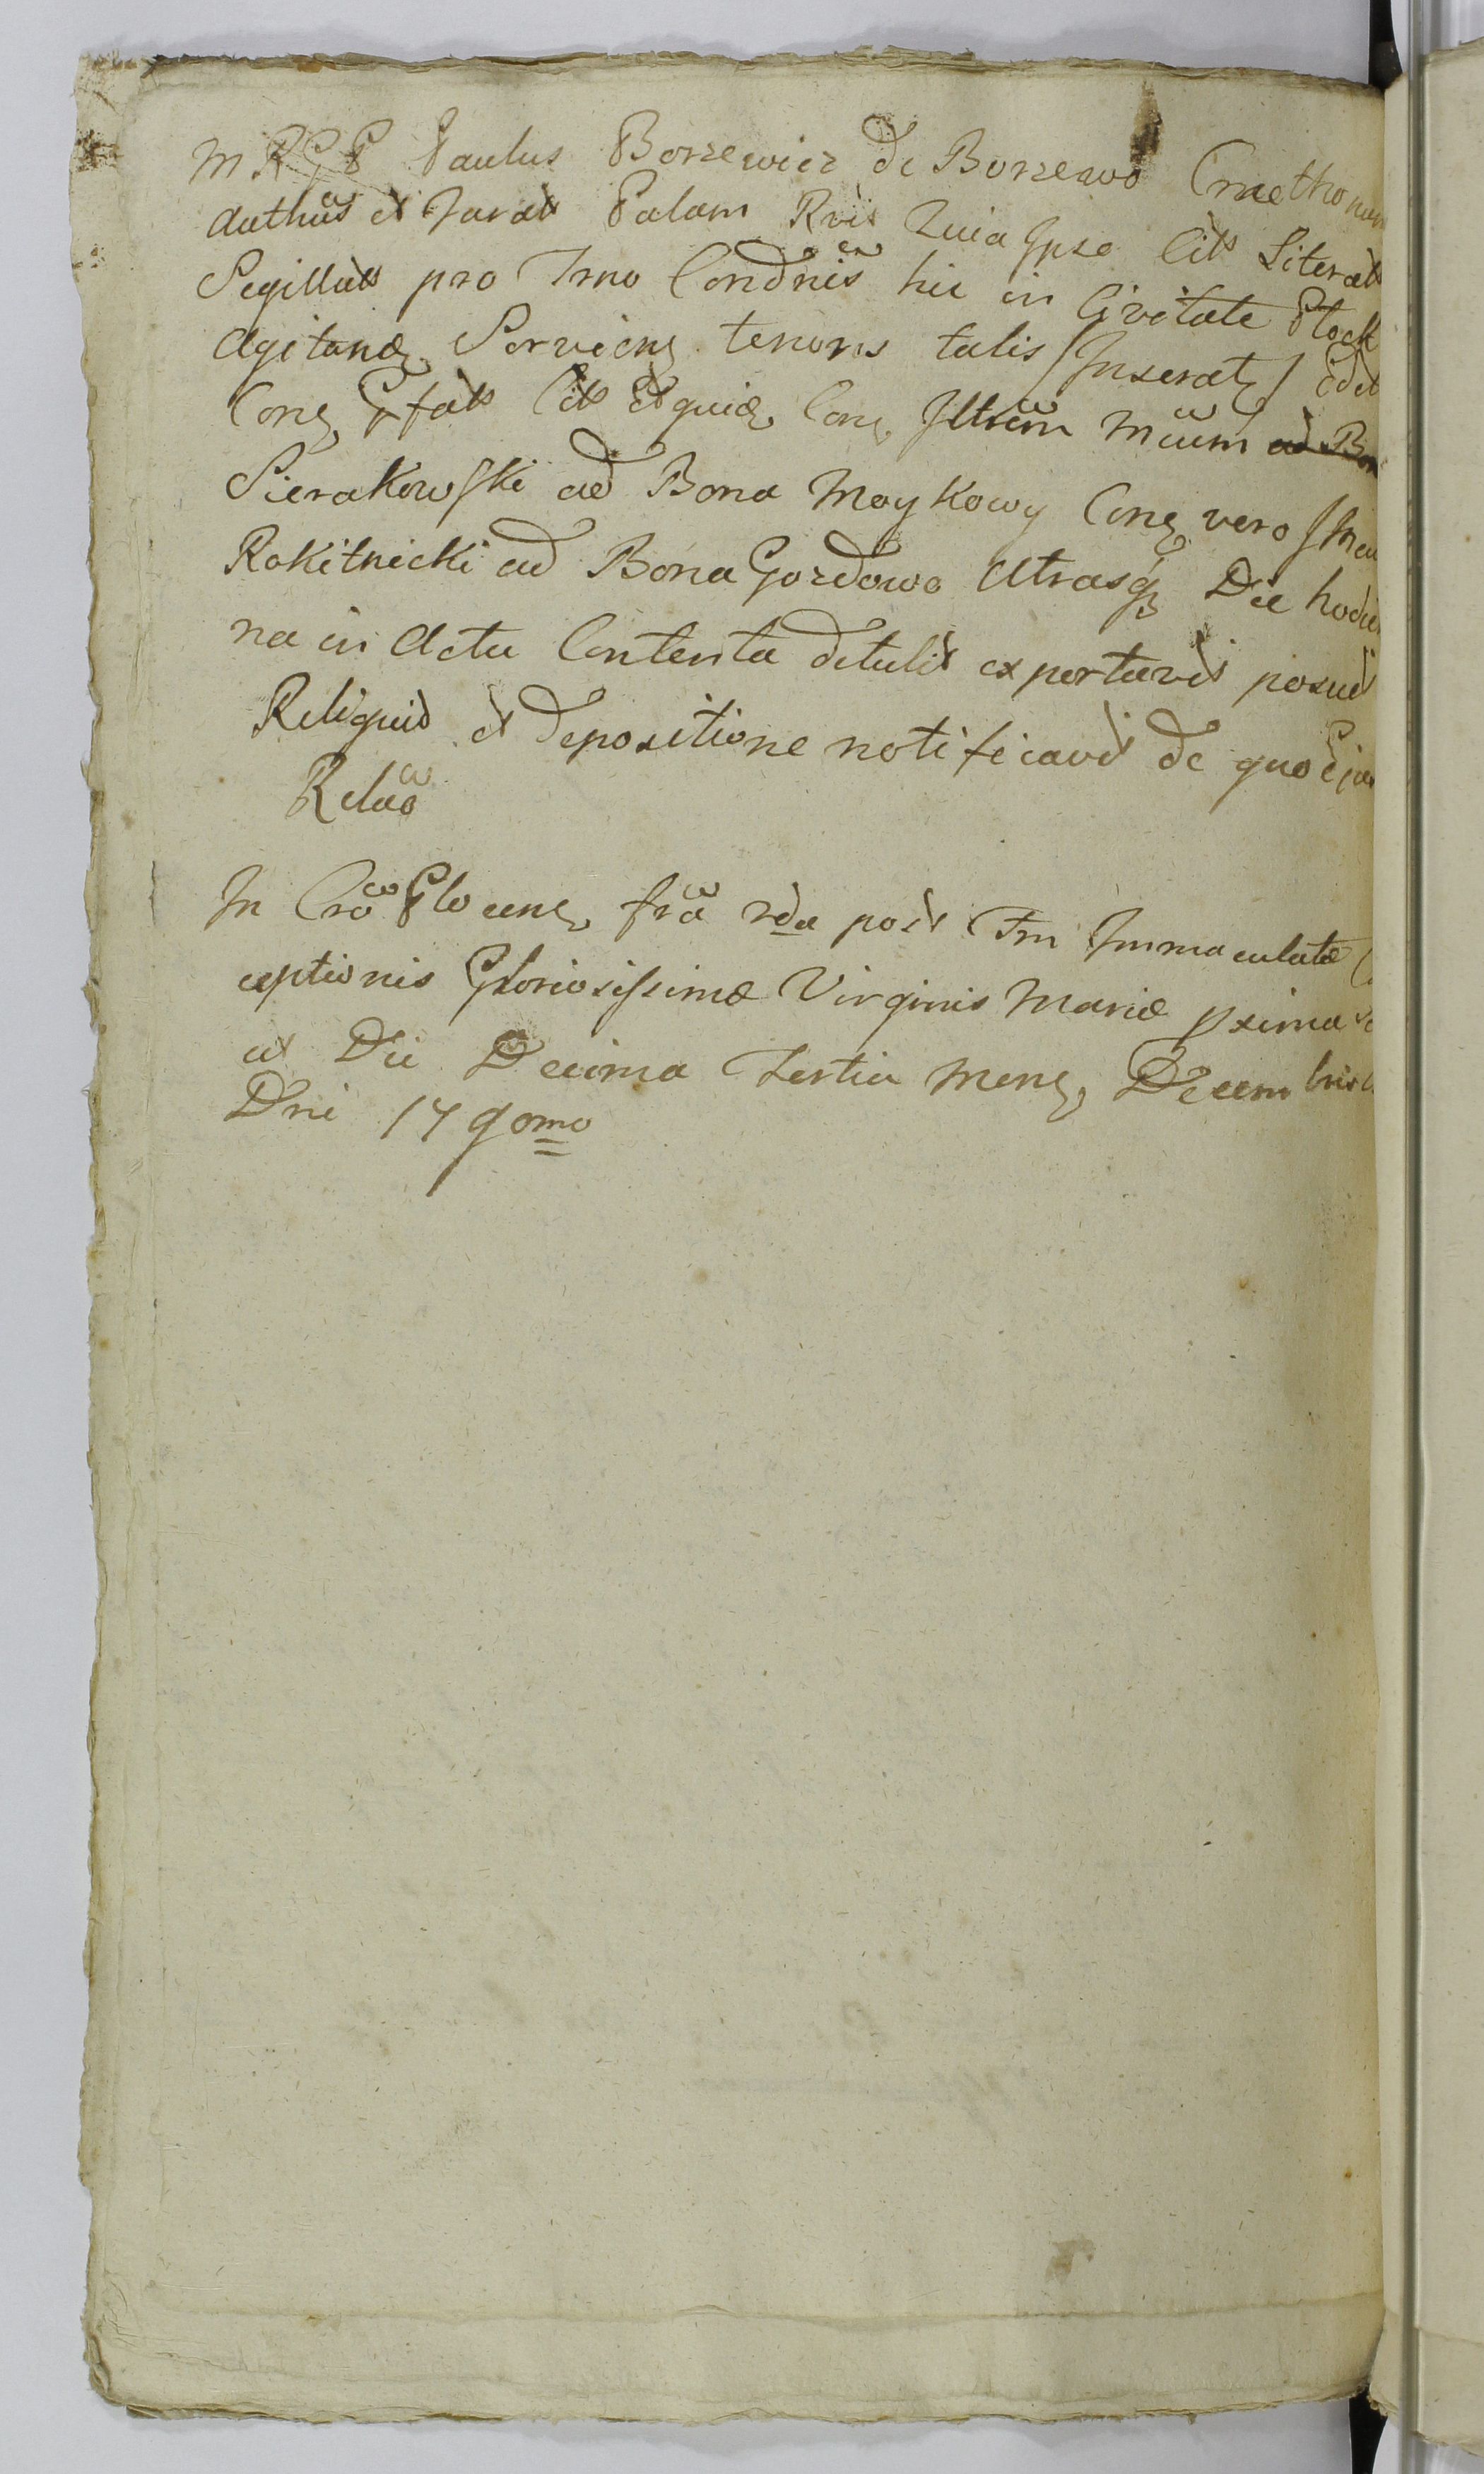 M. R. G. P. Paulus Borzewicz de Borzewo Cmethonum
Authūs et Jurat Palam Rvit Quia Ipse Cit Literat
Sigillat pro Trno Condnis hic in Civitate Plock
Agitand Serviens tenoris talis / Inserat / Edit
Con Pfat Cit et quid Con Illrem Mcum ad Bon
Sierakowski ad Bona Maykowy Con vero
Rokitnicki ad Bona Gozdowo Utrasq Die hodier
na in Actu Contenta detulit exportavit posuit
Reliquid et depositione notificavit de quo Ejus
Relao
In Cro Plocens fra 2da post Fm Immaculatæ
ceptionis Gloriosissimæ Virginis Mariæ pxima
et Die Decima Tertia Mens Decembris
Dni 1790mo